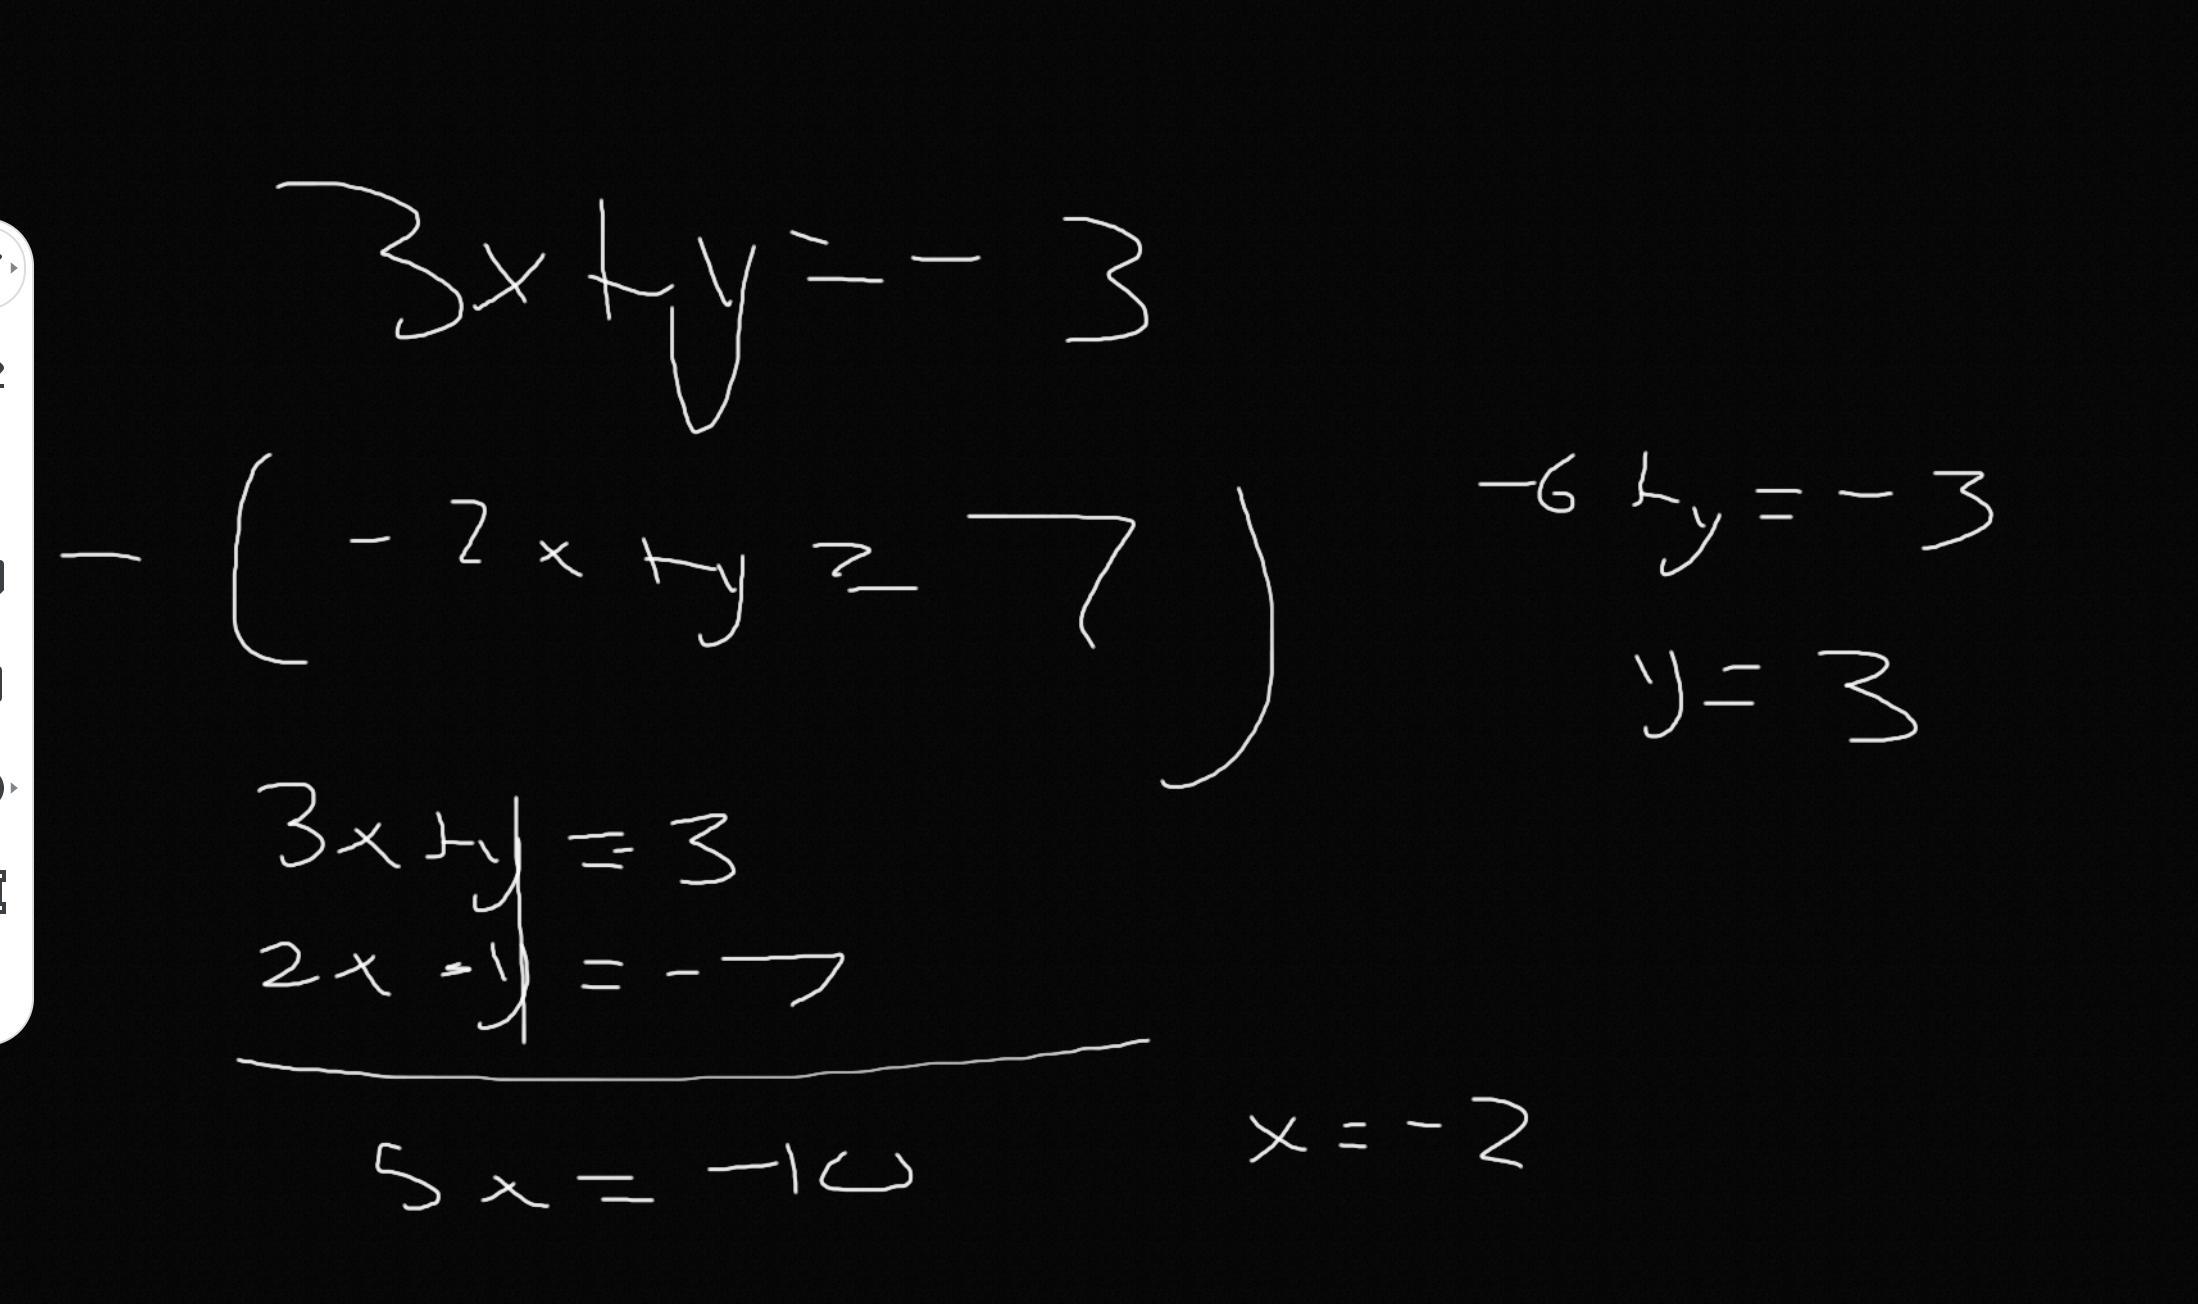 3x+y=-3
-(-2x+y=7)
3x+y=3
2x-y=-7
5x=-10
x=-2
-6+y=-3
y=3